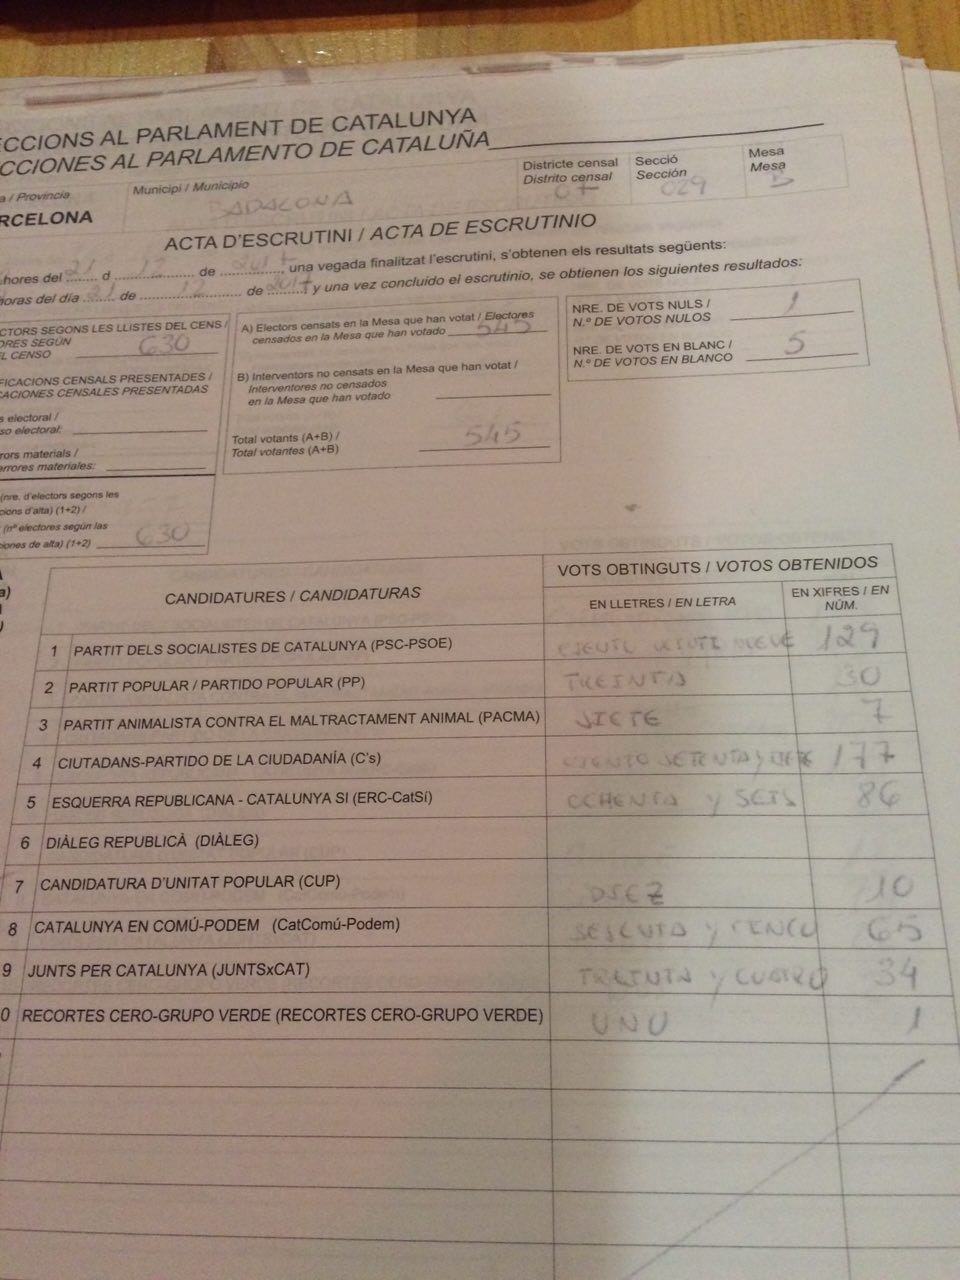 ECCIONS AL PARLAMENT DE CATALUNYA
CCIONES AL PARLAMENTO DE CATALUÑA
a / Provincia
RCELONA
Municipi / Municipio
BADALONA
Districte censal
Distrito censal
07
Secció
Sección
029
Mesa
Mesa
B
ACTA D'ESCRUTINI / ACTA DE ESCRUTINIO
hores del 21 d 12 de 2017, una vegada finalitzat l'escrutini, s'obtenen els resultats següents:
oras del día 21 de 12 de 2017 y una vez concluido el escrutinio, se obtienen los siguientes resultados:
CTORS SEGONS LES LLISTES DEL CENS /
ORES SEGÚN
L CENSO 630
FICACIONS CENSALS PRESENTADES /
CACIONES CENSALES PRESENTADAS
s electoral /
so electoral:
rors materials /
errores materiales:
(nre. d'electors segons les
cions d'alta) (1+2) /
(nº electores según las
ciones de alta) (1+2) 630
A) Electors censats en la Mesa que han votat / Electores
censados en la Mesa que han votado 545
B) Interventors no censats en la Mesa que han votat /
Interventores no censados
en la Mesa que han votado
Total votants (A+B) /
Total votantes (A+B) 545
NRE. DE VOTS NULS /
N.º DE VOTOS NULOS 1
NRE. DE VOTS EN BLANC /
N.º DE VOTOS EN BLANCO 5
CANDIDATURES / CANDIDATURAS
VOTS OBTINGUTS / VOTOS OBTENIDOS
EN LLETRES / EN LETRA
EN XIFRES / EN
NÚM.
1 PARTIT DELS SOCIALISTES DE CATALUNYA (PSC-PSOE) CIENTO VEINTI NUEVE 129
2 PARTIT POPULAR / PARTIDO POPULAR (PP) TREINTA 30
3 PARTIT ANIMALISTA CONTRA EL MALTRACTAMENT ANIMAL (PACMA) SIETE 7
4 CIUTADANS-PARTIDO DE LA CIUDADANÍA (C's) CIENTO SETENTA Y SIETE 177
5 ESQUERRA REPUBLICANA - CATALUNYA SI (ERC-CatSí) OCHENTA Y SEIS 86
6 DIÀLEG REPUBLICÀ (DIÀLEG)
7 CANDIDATURA D'UNITAT POPULAR (CUP) DIEZ 10
8 CATALUNYA EN COMÚ-PODEM (CatComú-Podem) SESENTA Y CINCO 65
9 JUNTS PER CATALUNYA (JUNTSxCAT) TREINTA Y CUATRO 34
0 RECORTES CERO-GRUPO VERDE (RECORTES CERO-GRUPO VERDE) UNO 1